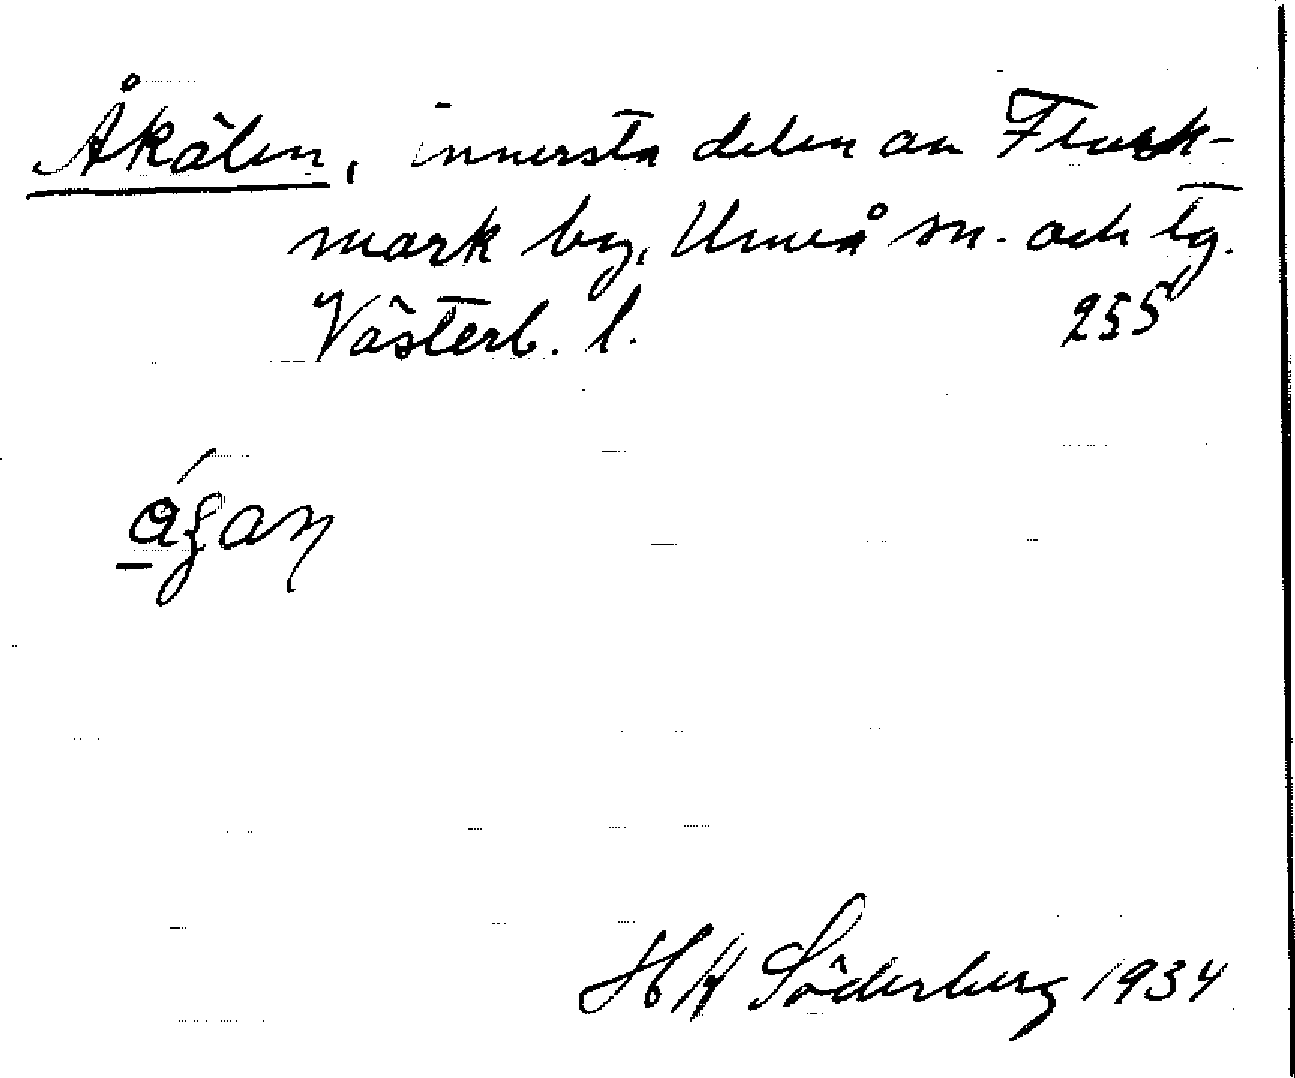 Åkälen, innersta delen av Flurk-
mark by, Umeå sn. och tg.
Västerb. l. 255
H H Söderberg 1934